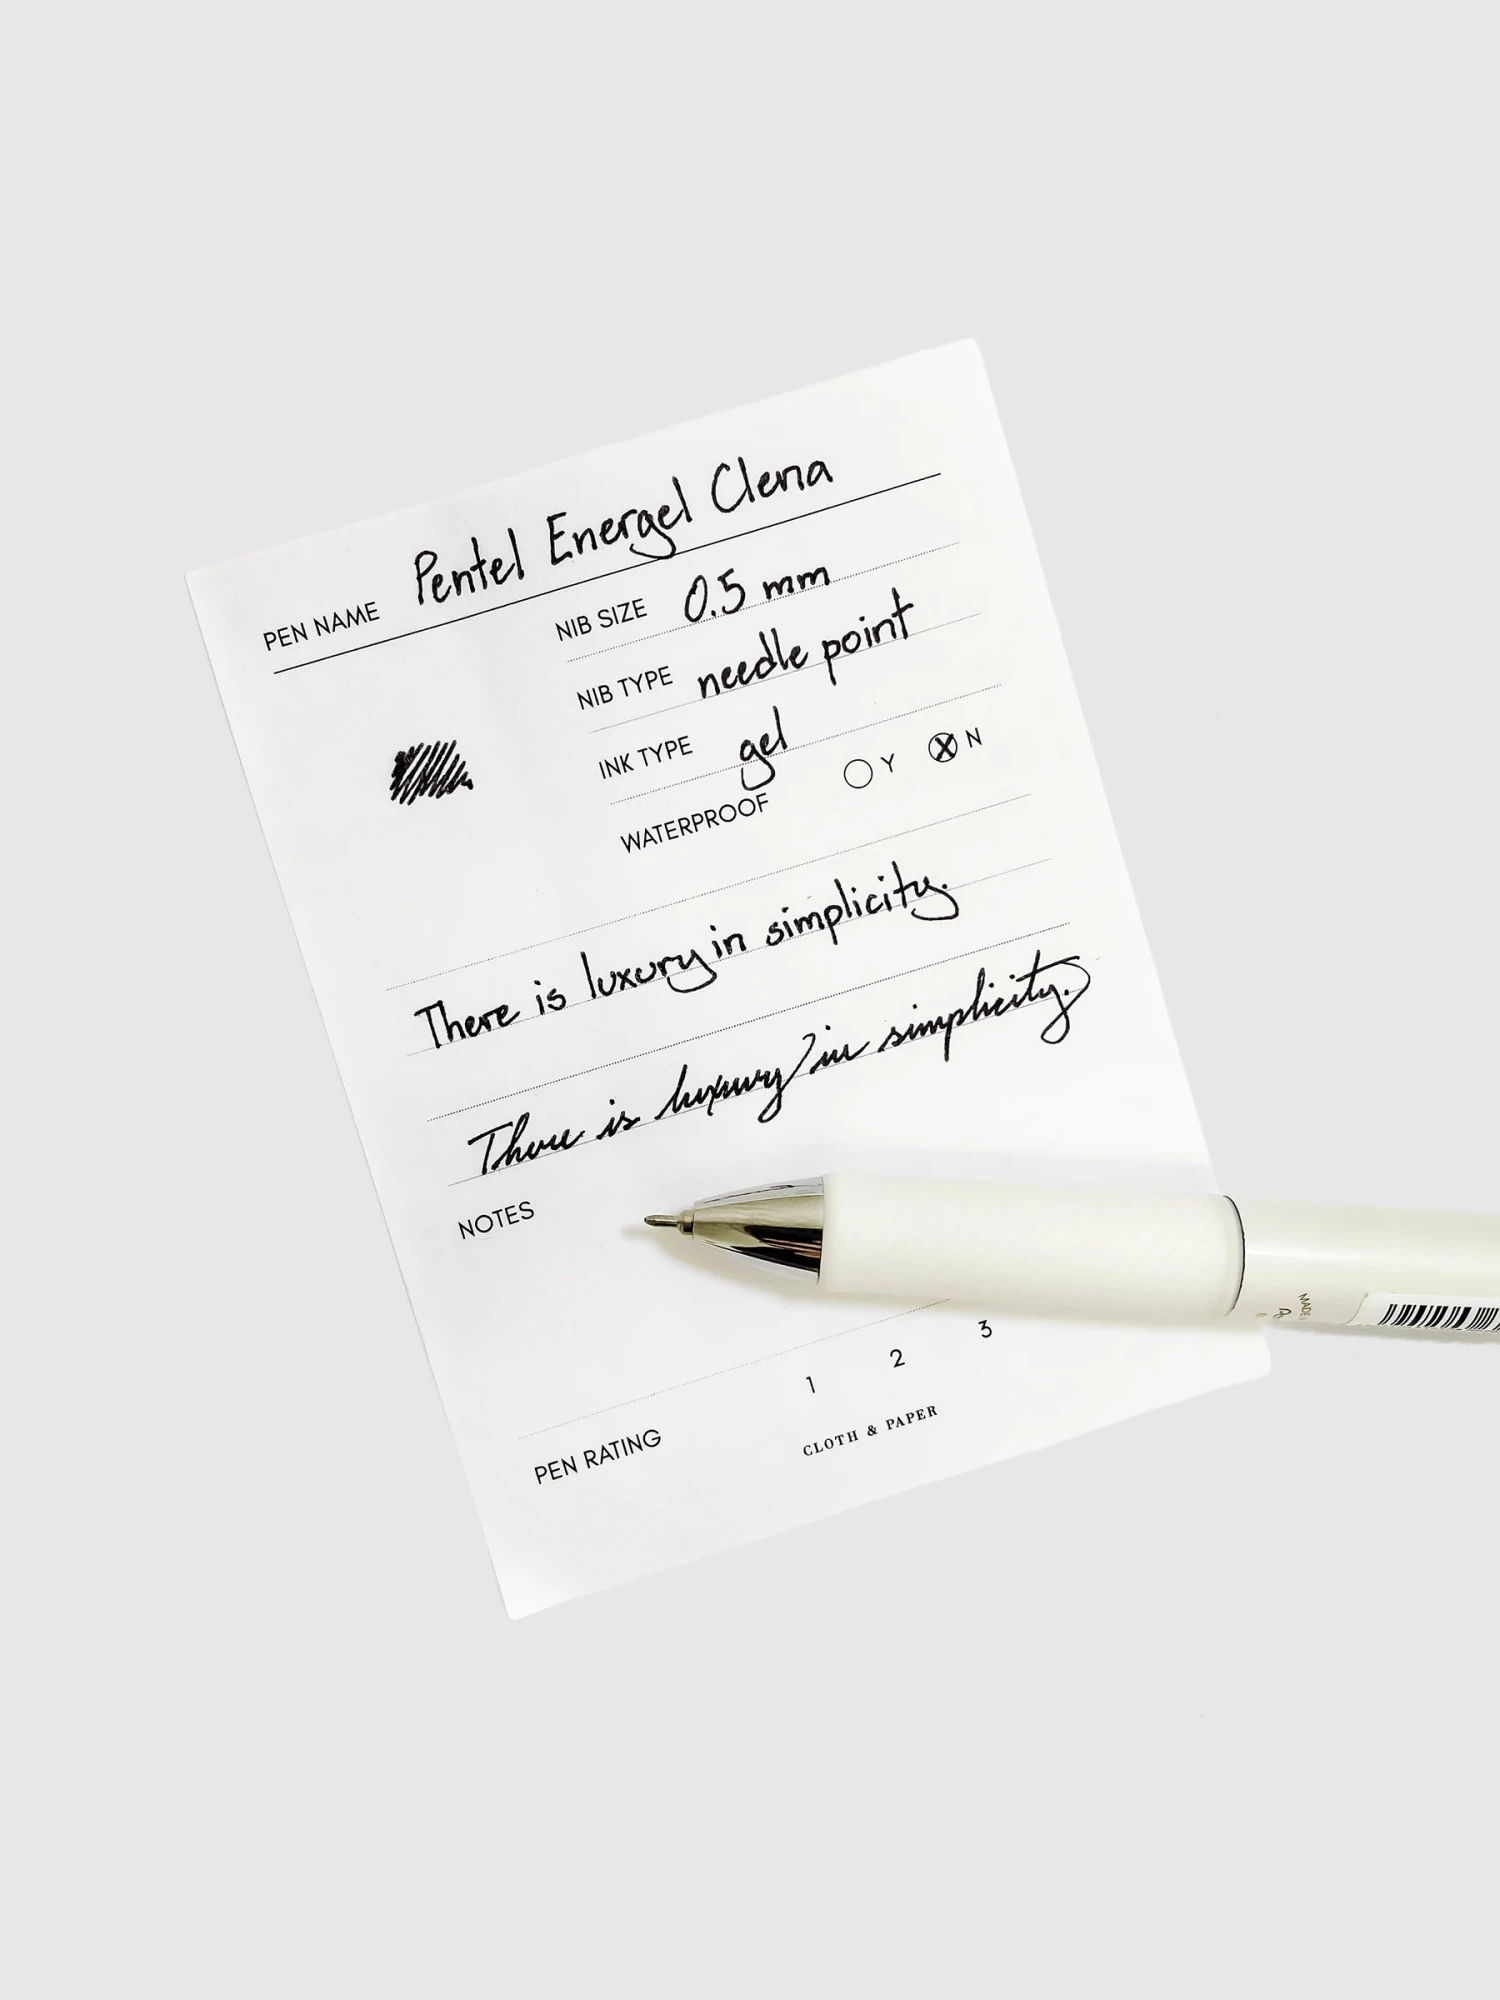 PEN NAME Pentel Energel Clena
NIB SIZE 0.5 mm
NIB TYPE needle point
INK TYPE gel
WATERPROOF Y N
There is luxury in simplicity.
There is luxury in simplicity.
NOTES
PEN RATING 1 2 3
CLOTH & PAPER
MADE